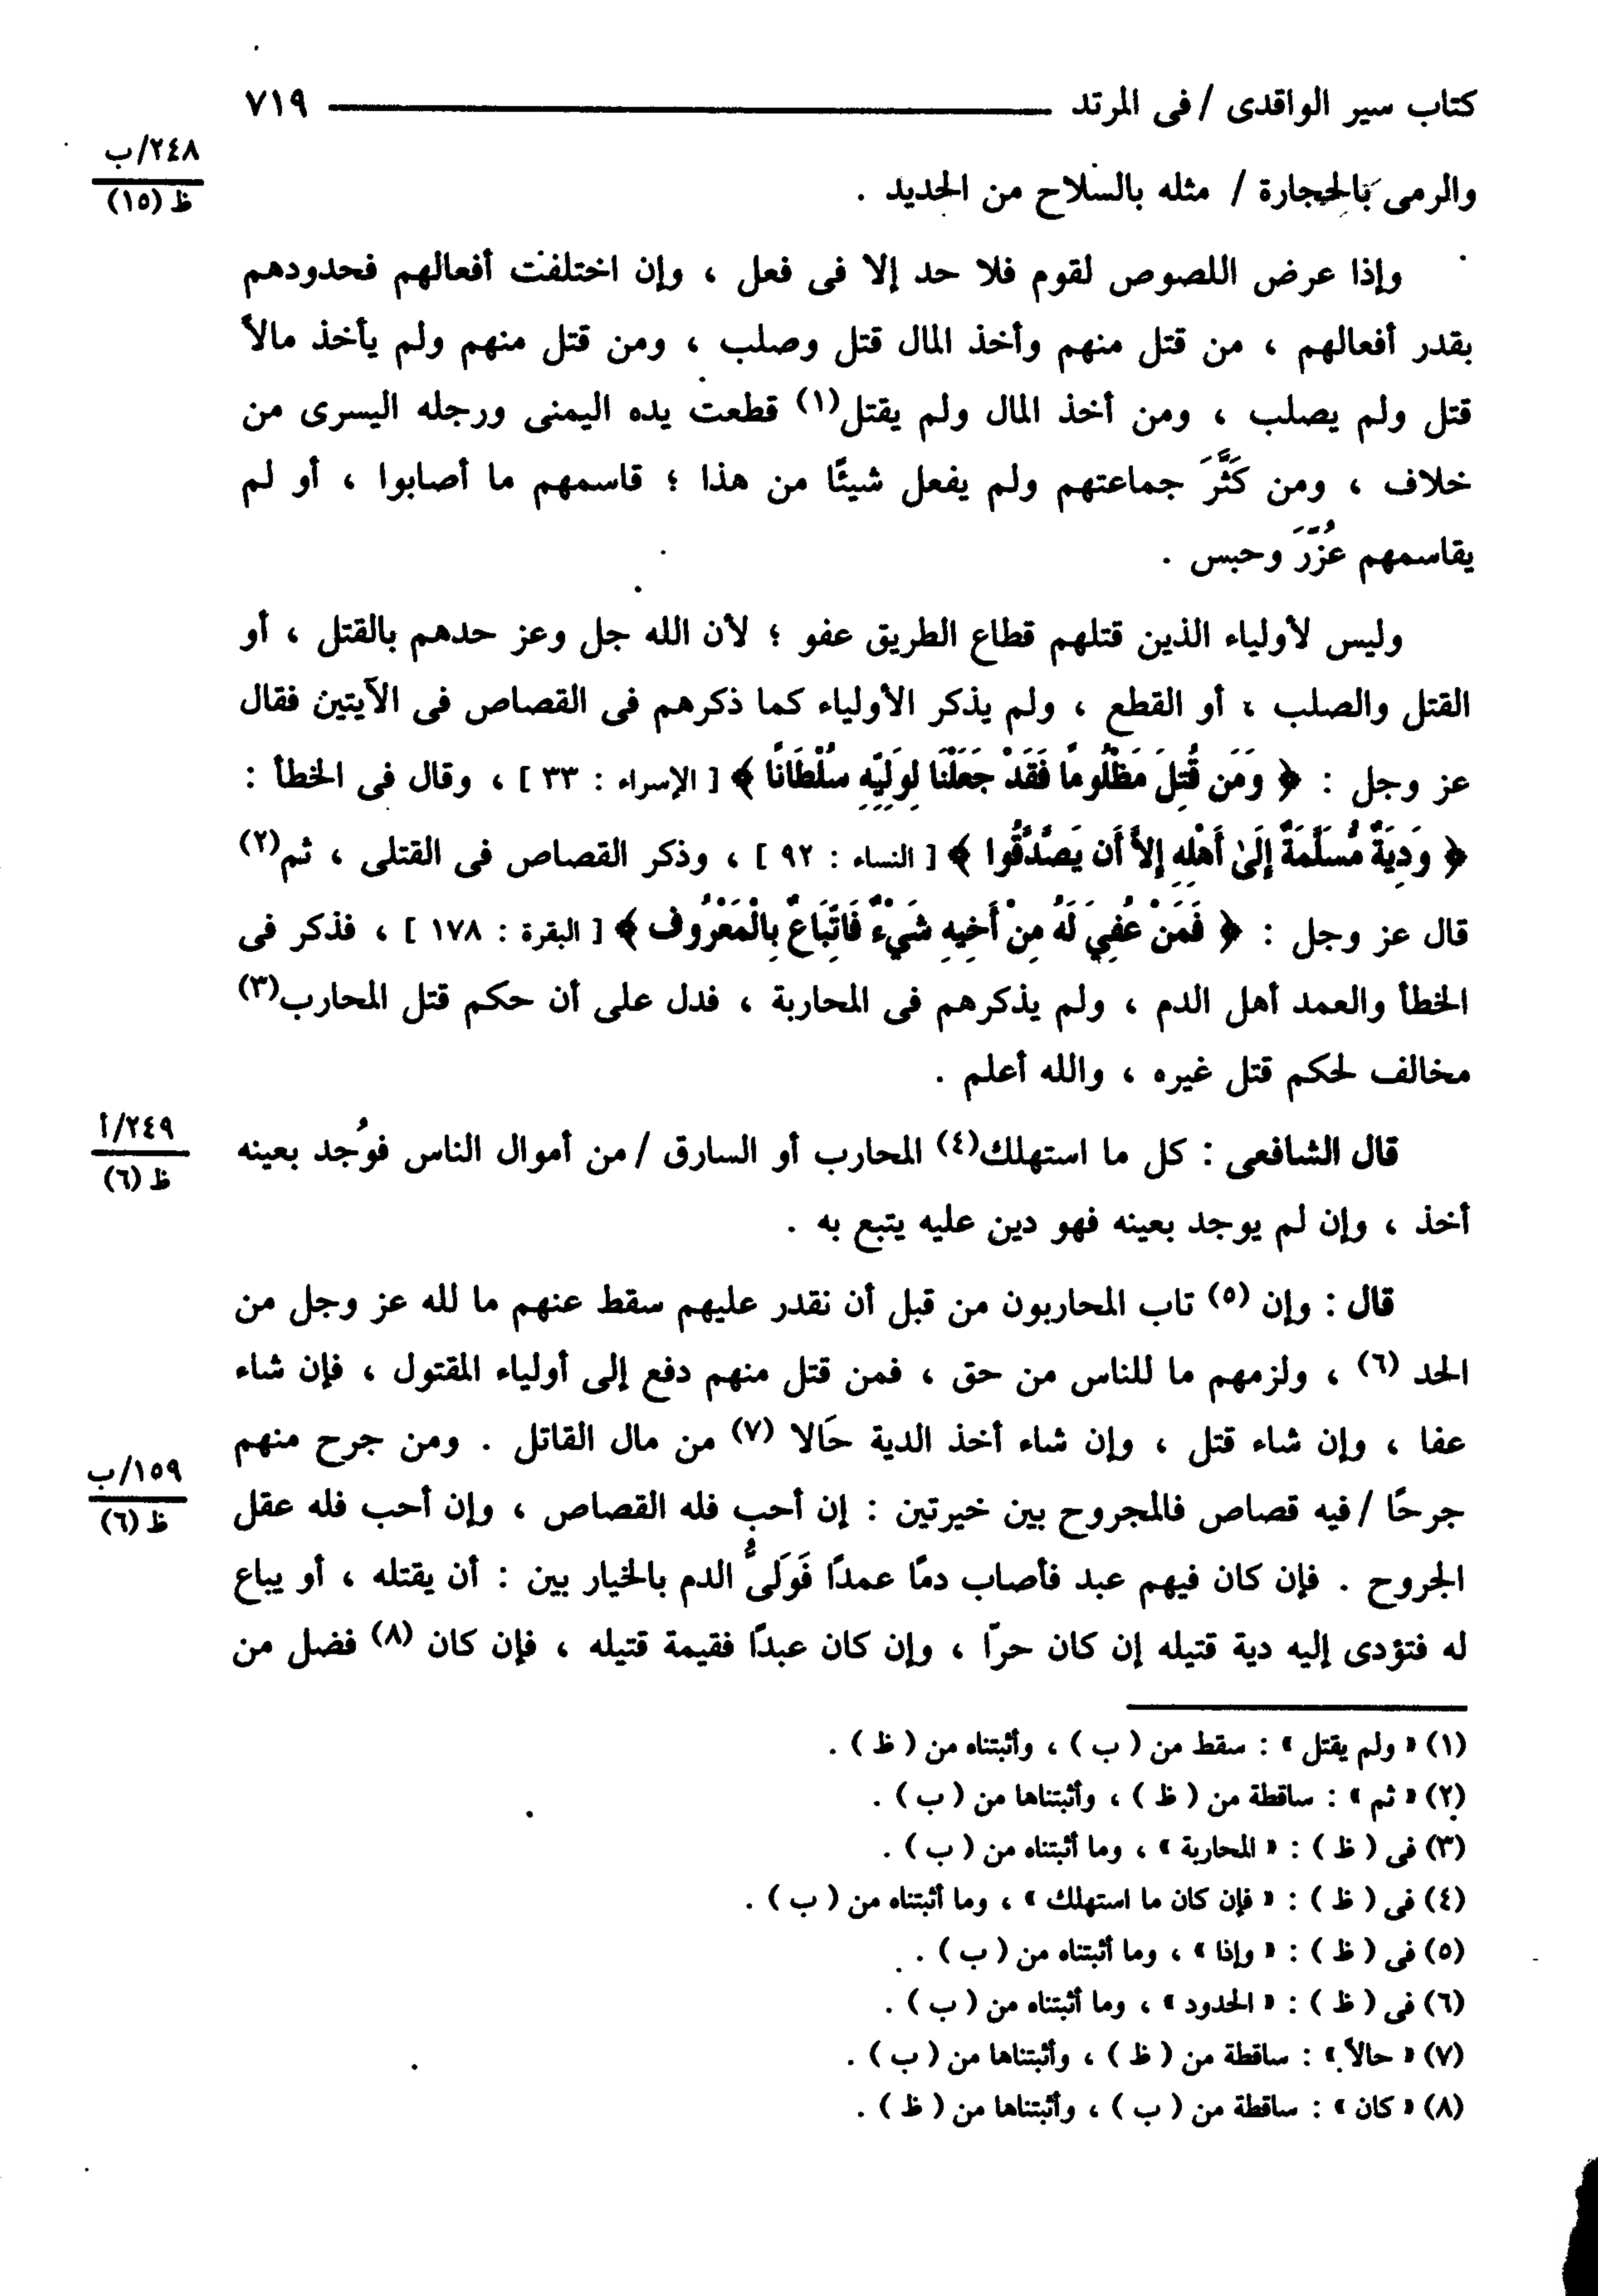 كتاب سير الواقدى / فى المرتد ٧١٩
٢٤٨/ب
ظ (١٥)
والرمى بالحِجارة / مثله بالسلاح من الحديد .
وإذا عرض اللصوص لقوم فلا حد إلا فى فعل ، وإن اختلفت أفعالهم فحدودهم
بقدر أفعالهم ، من قتل منهم وأخذ المال قتل وصلب ، ومن قتل منهم ولم يأخذ مالاً
قتل ولم يصلب ، ومن أخذ المال ولم يقتل(١) قطعت يده اليمنى ورجله اليسرى من
خلاف ، ومن كَثَّرَ جماعتهم ولم يفعل شيئًا من هذا ؛ قاسمهم ما أصابوا ، أو لم
يقاسمهم عُزِّرَ وحبس .
وليس لأولياء الذين قتلهم قطاع الطريق عفو ؛ لأن الله جل وعز حدهم بالقتل ، أو
القتل والصلب ، أو القطع ، ولم يذكر الأولياء كما ذكرهم فى القصاص فى الآيتين فقال
عز وجل : ﴿ وَمَن قُتِلَ مَظْلُومًا فَقَدْ جَعَلْنَا لِوَلِيِّهِ سُلْطَانًا ﴾ [ الإسراء : ٣٣ ] ، وقال فى الخطأ :
﴿ وَدِيَةٌ مُّسَلَّمَةٌ إِلَىٰ أَهْلِهِ إِلاَّ أَن يَصَّدَّقُوا ﴾ [ النساء : ٩٢ ] ، وذكر القصاص فى القتلى ، ثم(٢)
قال عز وجل : ﴿ فَمَنْ عُفِيَ لَهُ مِنْ أَخِيهِ شَيْءٌ فَاتِّبَاعٌ بِالْمَعْرُوفِ ﴾ [ البقرة : ١٧٨ ] ، فذكر فى
الخطأ والعمد أهل الدم ، ولم يذكرهم فى المحاربة ، فدل على أن حكم قتل المحارب(٣)
مخالف لحكم قتل غيره ، والله أعلم .
قال الشافعى : كل ما استهلك(٤) المحارب أو السارق / من أموال الناس فوُجد بعينه
٢٤٩/أ
ظ (٦)
أخذ ، وإن لم يوجد بعينه فهو دين عليه يتبع به .
قال : وإن (٥) تاب المحاربون من قبل أن نقدر عليهم سقط عنهم ما لله عز وجل من
الحد (٦) ، ولزمهم ما للناس من حق ، فمن قتل منهم دفع إلى أولياء المقتول ، فإن شاء
عفا ، وإن شاء قتل ، وإن شاء أخذ الدية حَالا (٧) من مال القاتل . ومن جرح منهم
١٥٩/ب
ظ (٦)
جرحًا / فيه قصاص فالمجروح بين خيرتين : إن أحب فله القصاص ، وإن أحب فله عقل
الجروح . فإن كان فيهم عبد فأصاب دمًا عمدًا فَوَلىُّ الدم بالخيار بين : أن يقتله ، أو يباع
له فتؤدى إليه دية قتيله إن كان حرًا ، وإن كان عبدًا فقيمة قتيله ، فإن كان (٨) فضل من
(١) « ولم يقتل » : سقط من ( ب ) ، وأثبتناه من ( ظ ) .
(٢) « ثم » : ساقطة من ( ظ ) ، وأثبتناها من ( ب ) .
(٣) فى ( ظ ) : « المحاربة » ، وما أثبتناه من ( ب ) .
(٤) فى ( ظ ) : « فإن كان ما استهلك » ، وما أثبتناه من ( ب ) .
(٥) فى ( ظ ) : « وإذا » ، وما أثبتناه من ( ب ) .
(٦) فى ( ظ ) : « الحدود » ، وما أثبتناه من ( ب ) .
(٧) « حالاً » : ساقطة من ( ظ ) ، وأثبتناها من ( ب ) .
(٨) « كان » : ساقطة من ( ب ) ، وأثبتناها من ( ظ ) .